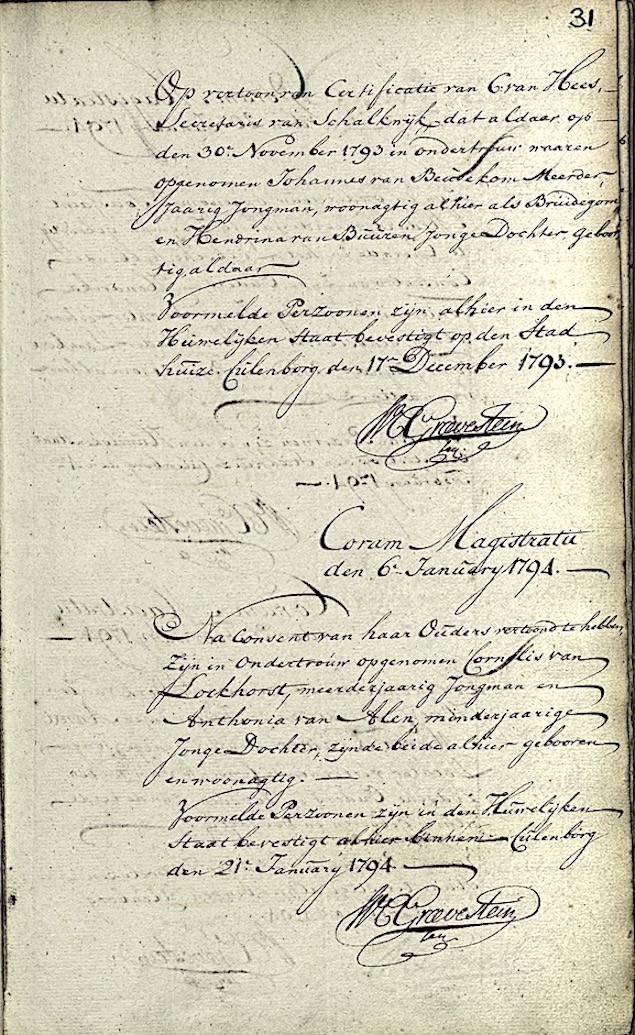 31
Op vertoon van Certificatie van G. van Hees,
Secretaris van Schalkwijk, dat aldaar op
den 30e November 1793 in ondertrouw waaren
opgenomen Johannes van Beusekom Meerder,
Jaarig Jongman, woonagtig alhier als Bruidegom
en Hendrina van Buuren, Jonge Dochter, geboor
tig, aldaar
Voormelde Perzoonen zijn, alhier in den
Huwelijken Staat bevestigt op den Stad
huize. Cúlenborg, den 17e December 1793.
Grevestein
Coram Magistratu
den 6e January 1794.
Na Consent van haar Ouders vertoond te hebben,
Zijn in Ondertrouw opgenomen Cornelis van
Lockhorst, meerderjaarig Jongman en
Anthonia van Alen, minderjaarige
Jonge Dochter, zijnde beide alhier gebooren
en woonagtig.
Voormelde Perzoonen zijn in den Huwelijken
Staat bevestigt alhier binnen Cúlenborg
den 21e January 1794
Grevestein